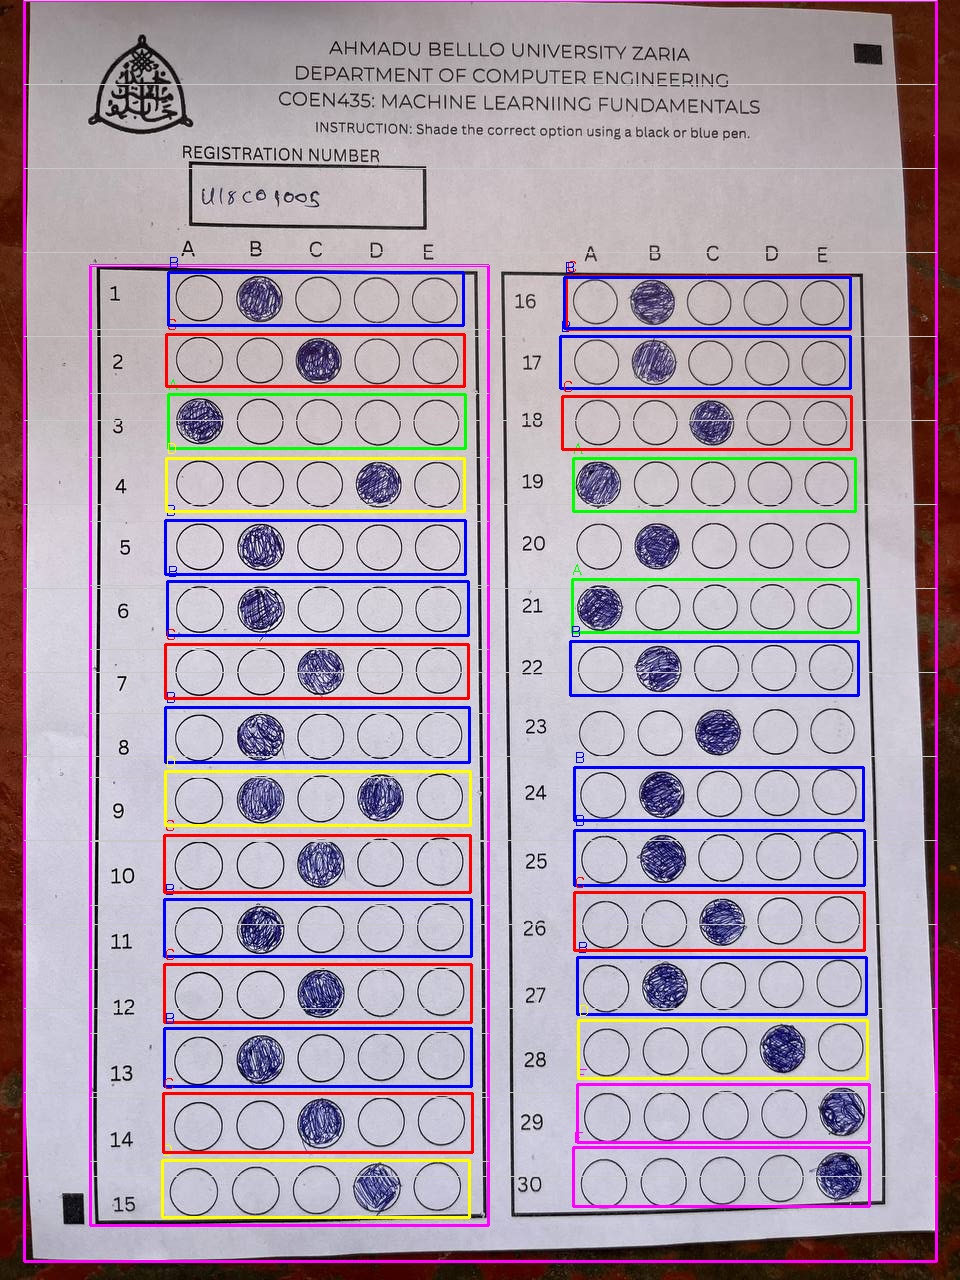 AHMADU BELLLO UNIVERSITY ZARIA
DEPARTMENT OF COMPUTER ENGINEERING
COEN435: MACHINE LEARNIING FUNDAMENTALS
INSTRUCTION: Shade the correct option using a black or blue pen.
REGISTRATION NUMBER
U18CO1005
A B C D E
B
1
C
2
A
3
D
4
B
5
B
6
C
7
B
8
D
9
C
10
B
11
C
12
B
13
C
14
D
15
A B C D E
16
B
17
C
18
A
19
20
A
21
B
22
23
B
24
B
25
C
26
B
27
D
28
E
29
E
30